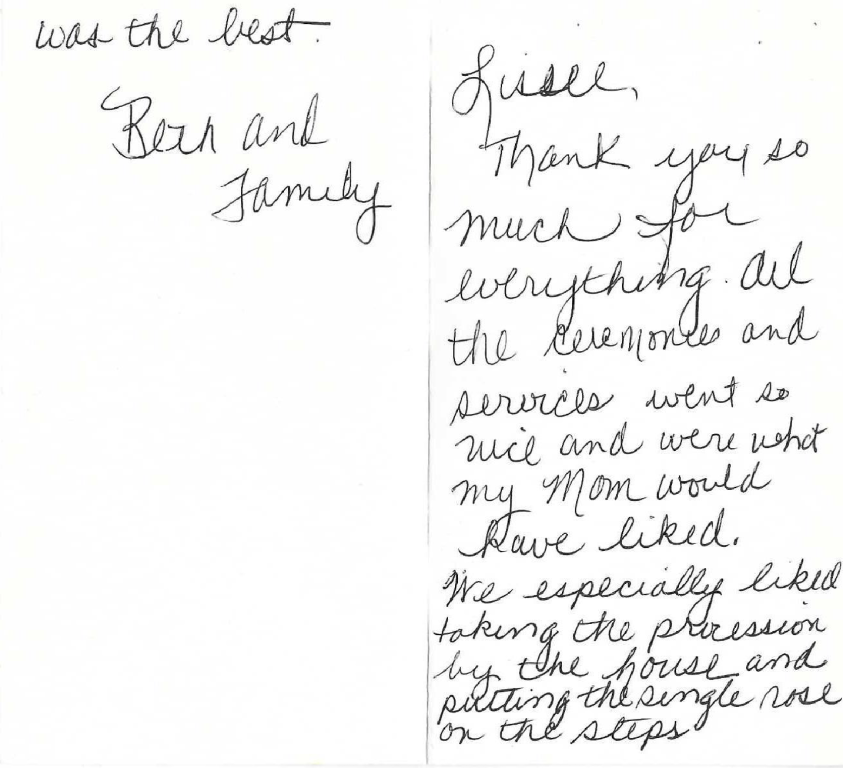 Lissee,
Thank you so
much for
everything. All
the ceremonies and
services went so
nice and were what
my Mom would
have liked.
We especially liked
taking the procession
by the house and
putting the single rose
on the steps
was the best.
and
Family